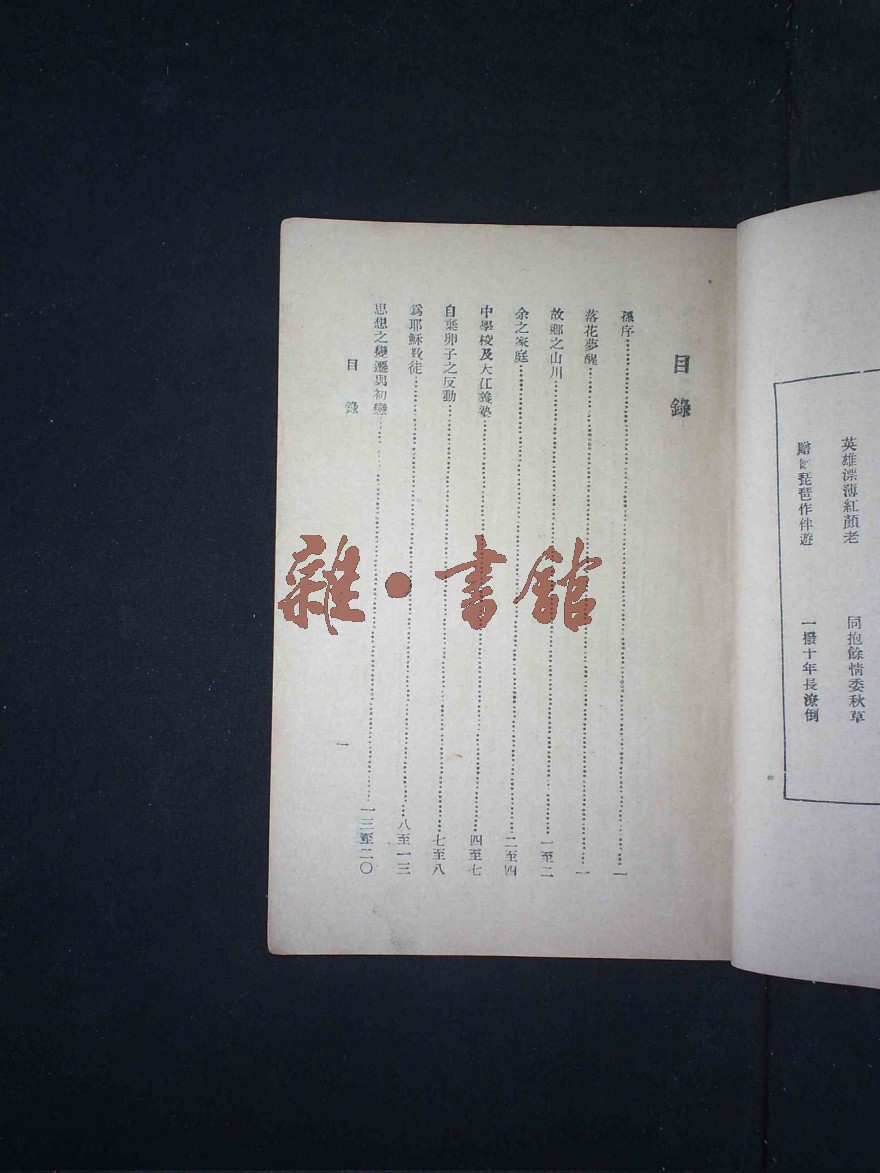 英雄漂薄紅顏老　同抱餘情委秋草
琵琶作伴遊　一撥十年長潦倒
目錄
孫序……一
落花夢醒……一
故鄉之山川……一至二
余之家庭……二至四
中學校及大江義塾……四至七
自棄卵子之反動……七至八
爲耶穌教徒……八至一三
思想之變遷與初戀……一三至二〇
目錄
一
雜·書館